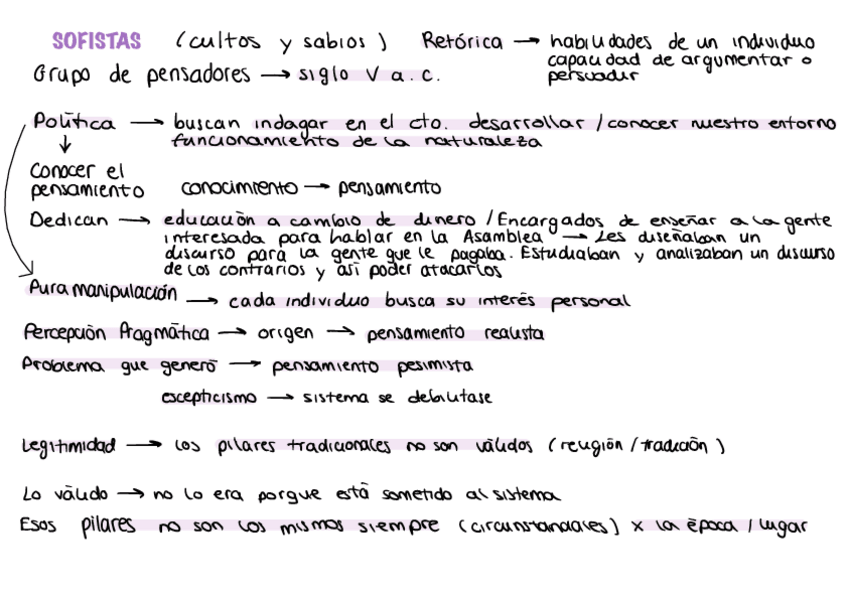 SOFISTAS (cultos y sabios) Retórica → habilidades de un individuo
capacidad de argumentar o
persuadir
Grupo de pensadores → siglo V a.c.
Política → buscan indagar en el cto. desarrollar / conocer nuestro entorno
funcionamiento de la naturaleza
↓
Conocer el
pensamiento conocimiento → pensamiento
Dedican → educación a cambio de dinero / Encargados de enseñar a la gente
interesada para hablar en la Asamblea → Les diseñaban un
discurso para la gente que le pagaba. Estudiaban y analizaban un discurso
de los contrarios y así poder atacarlos
Pura manipulación → cada individuo busca su interés personal
Percepción Pragmática → origen → pensamiento realista
Problema que generó → pensamiento pesimista
escepticismo → sistema se debilitase
Legitimidad → los pilares tradicionales no son válidos (religión / tradición)
Lo válido → no lo era porque está sometido al sistema
Esos pilares no son los mismos siempre (circunstanciales) x la época / lugar